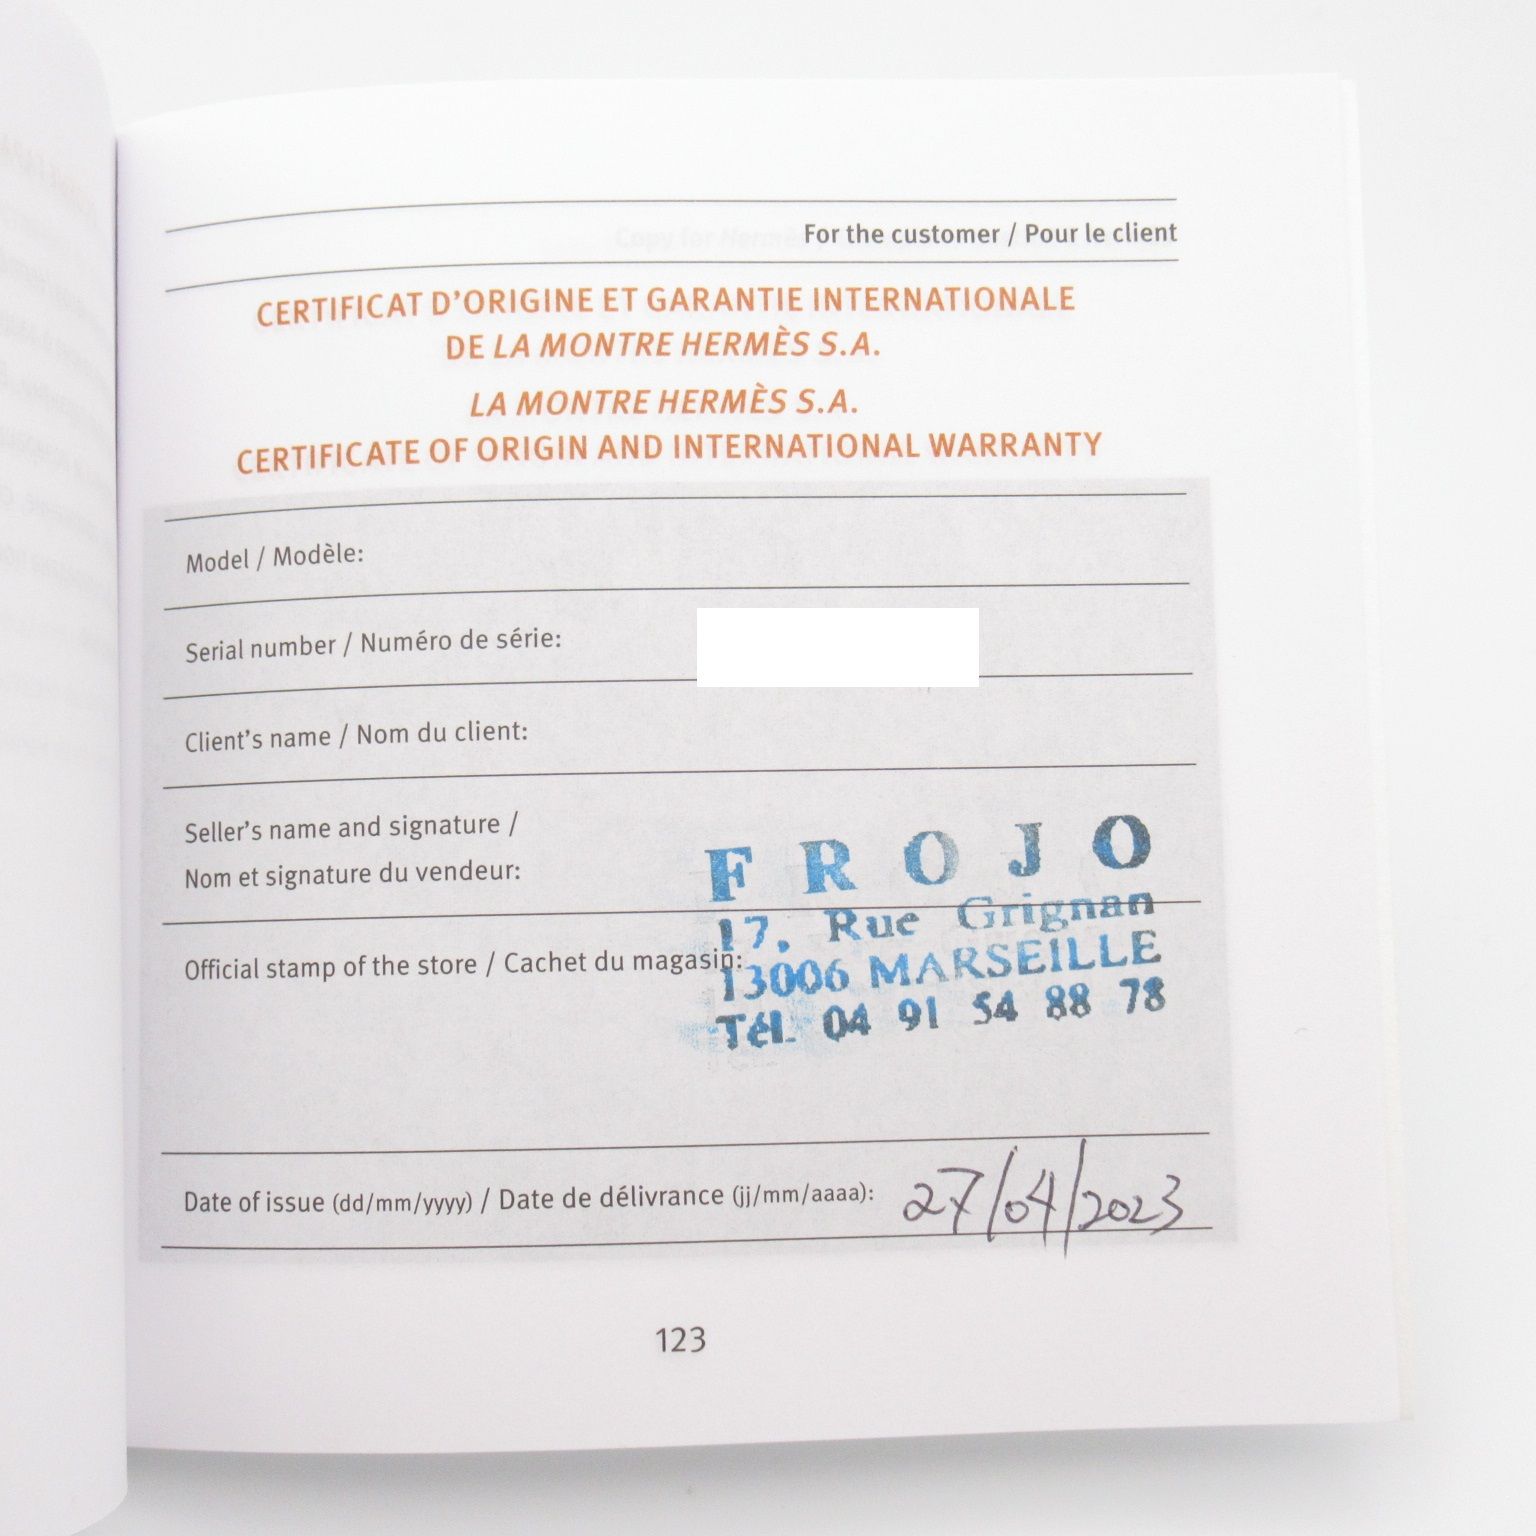 For the customer / Pour le client
CERTIFICAT D'ORIGINE ET GARANTIE INTERNATIONALE
DE LA MONTRE HERMÈS S.A.
LA MONTRE HERMÈS S.A.
CERTIFICATE OF ORIGIN AND INTERNATIONAL WARRANTY
Model / Modèle:
Serial number / Numéro de série:
Client's name / Nom du client:
Seller's name and signature /
Nom et signature du vendeur:
FROJO
17, Rue Grignan
13006 MARSEILLE
Tél. 04 91 54 88 78
Official stamp of the store / Cachet du magasin:
Date of issue (dd/mm/yyyy) / Date de délivrance (jj/mm/aaaa): 27/04/2023
123